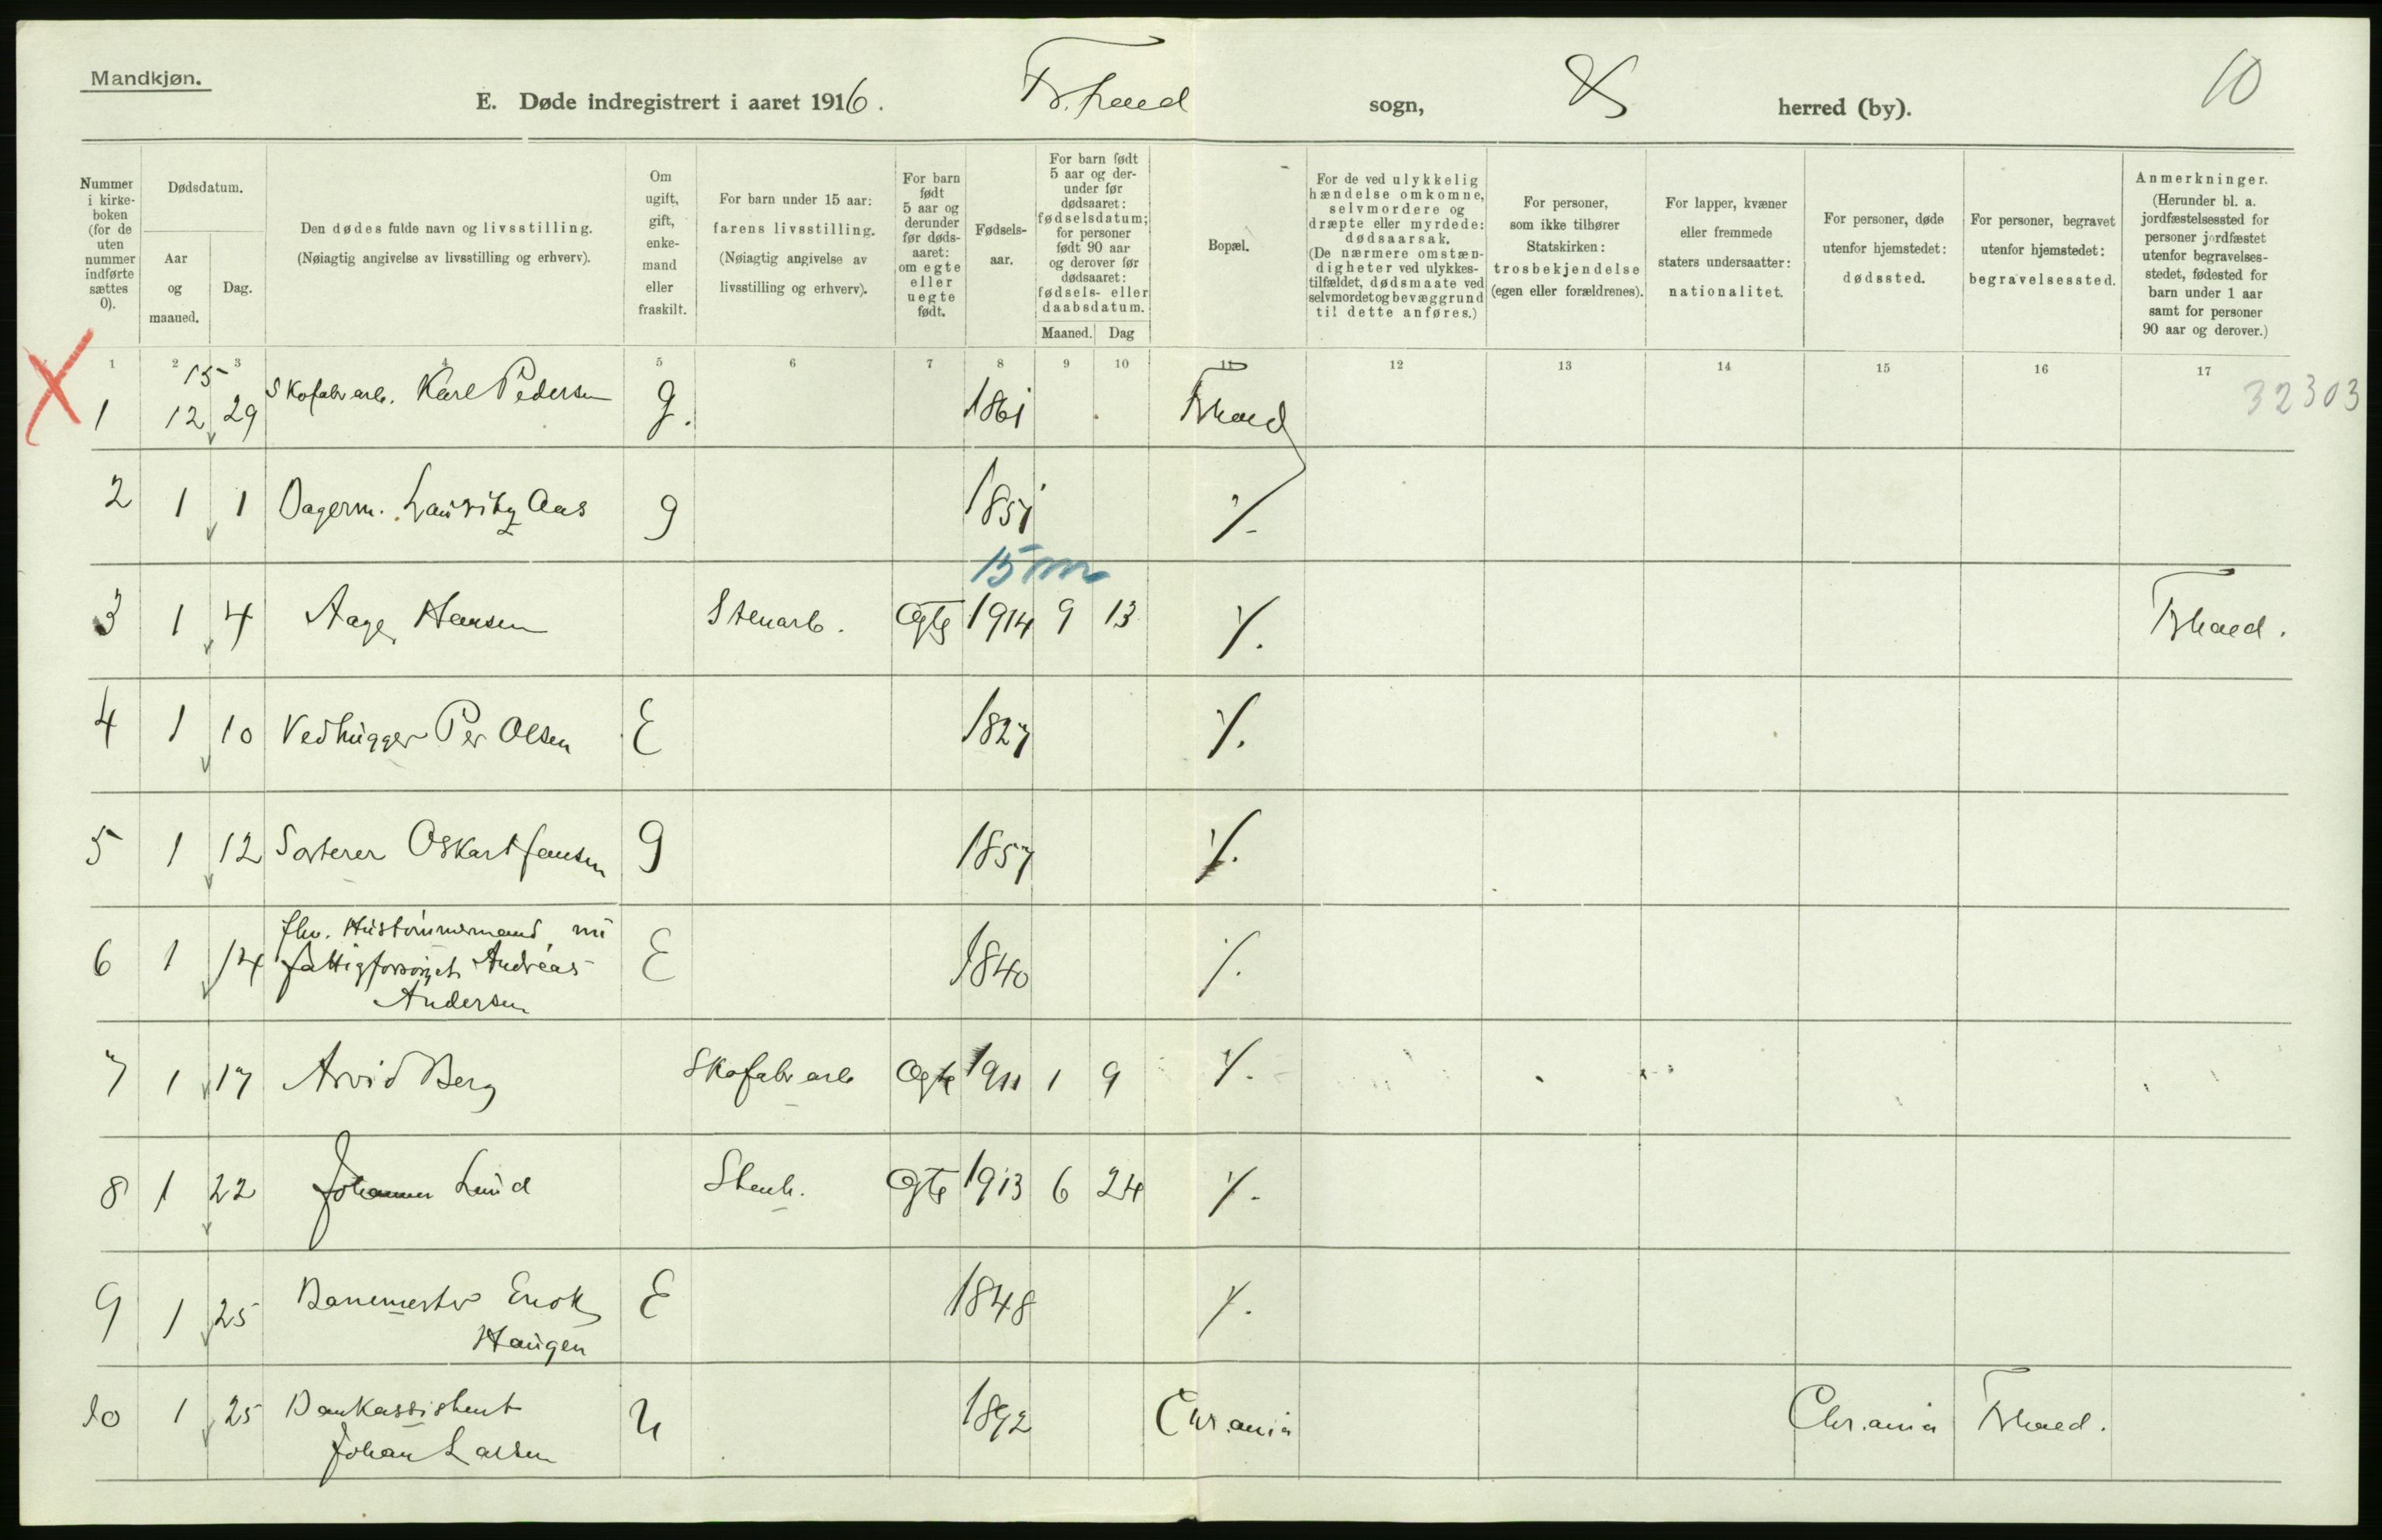 Mandkjøn.
E. Døde indregistrert i aaret 1916. Fr.hald sogn, herred (by). 10
Nummer i kirkeboken (for de uten nummer indførte sættes 0).
Dødsdatum.
Aar og maaned.
Dag.
Den dødes fulde navn og livsstilling.
(Nøiagtig angivelse av livsstilling og erhverv).
Om ugift, gift, enkemand eller fraskilt.
For barn under 15 aar: farens livsstilling.
(Nøiagtig angivelse av livsstilling og erhverv).
For barn født 5 aar og derunder før dødsaaret: om egte eller uegte født.
Fødselsaar.
For barn født 5 aar og derunder før dødsaaret: fødselsdatum; for personer født 90 aar og derover før dødsaaret: fødsels- eller daabsdatum.
Maaned. Dag
Bopæl.
For de ved ulykkelig hændelse omkomne, selvmordere og dræpte eller myrdede: dødsaarsak.
(De nærmere omstændigheter ved ulykkestilfældet, dødsmaate ved selvmordet og bevæggrund til dette anføres.)
For personer, som ikke tilhører Statskirken: trosbekjendelse (egen eller forældrenes).
For lapper, kvæner eller fremmede staters undersaatter: nationalitet.
For personer, døde utenfor hjemstedet: dødssted.
For personer, begravet utenfor hjemstedet: begravelsessted.
Anmerkninger.
(Herunder bl. a. jordfæstelsessted for personer jordfæstet utenfor begravelsesstedet, fødested for barn under 1 aar samt for personer 90 aar og derover.)
1 2 3 4 5 6 7 8 9 10 11 12 13 14 15 16 17
X 15 32303
1 12 29 Skofabr arb. Karl Pedersen g. 1861 Frhald
2 1 1 Dagarm. Lauritz Aas g 1851 %
15 m
3 1 4 Aage Hansen Stenarb. Egte 1914 9 13 %. Frhald.
4 1 10 Vedhugger Per Olsen E 1827 %.
5 1 12 Sorterer Oskar Hansen g 1857 %.
6 1 14 fhv. Hustømmermand nu
fattigforsørget Andreas E 1840 %.
Andersen
7 1 17 Arvid Berg Skofabr arb Egte 1911 1 9 %.
8 1 22 Johannes Lund Stenh. Egte 1913 6 24 %.
9 1 25 Banemester Enok E 1848 %.
Haugen
10 1 25 Bankassistent U 1892 Chr.ania Chr.ania Frhald.
Johan Larsen